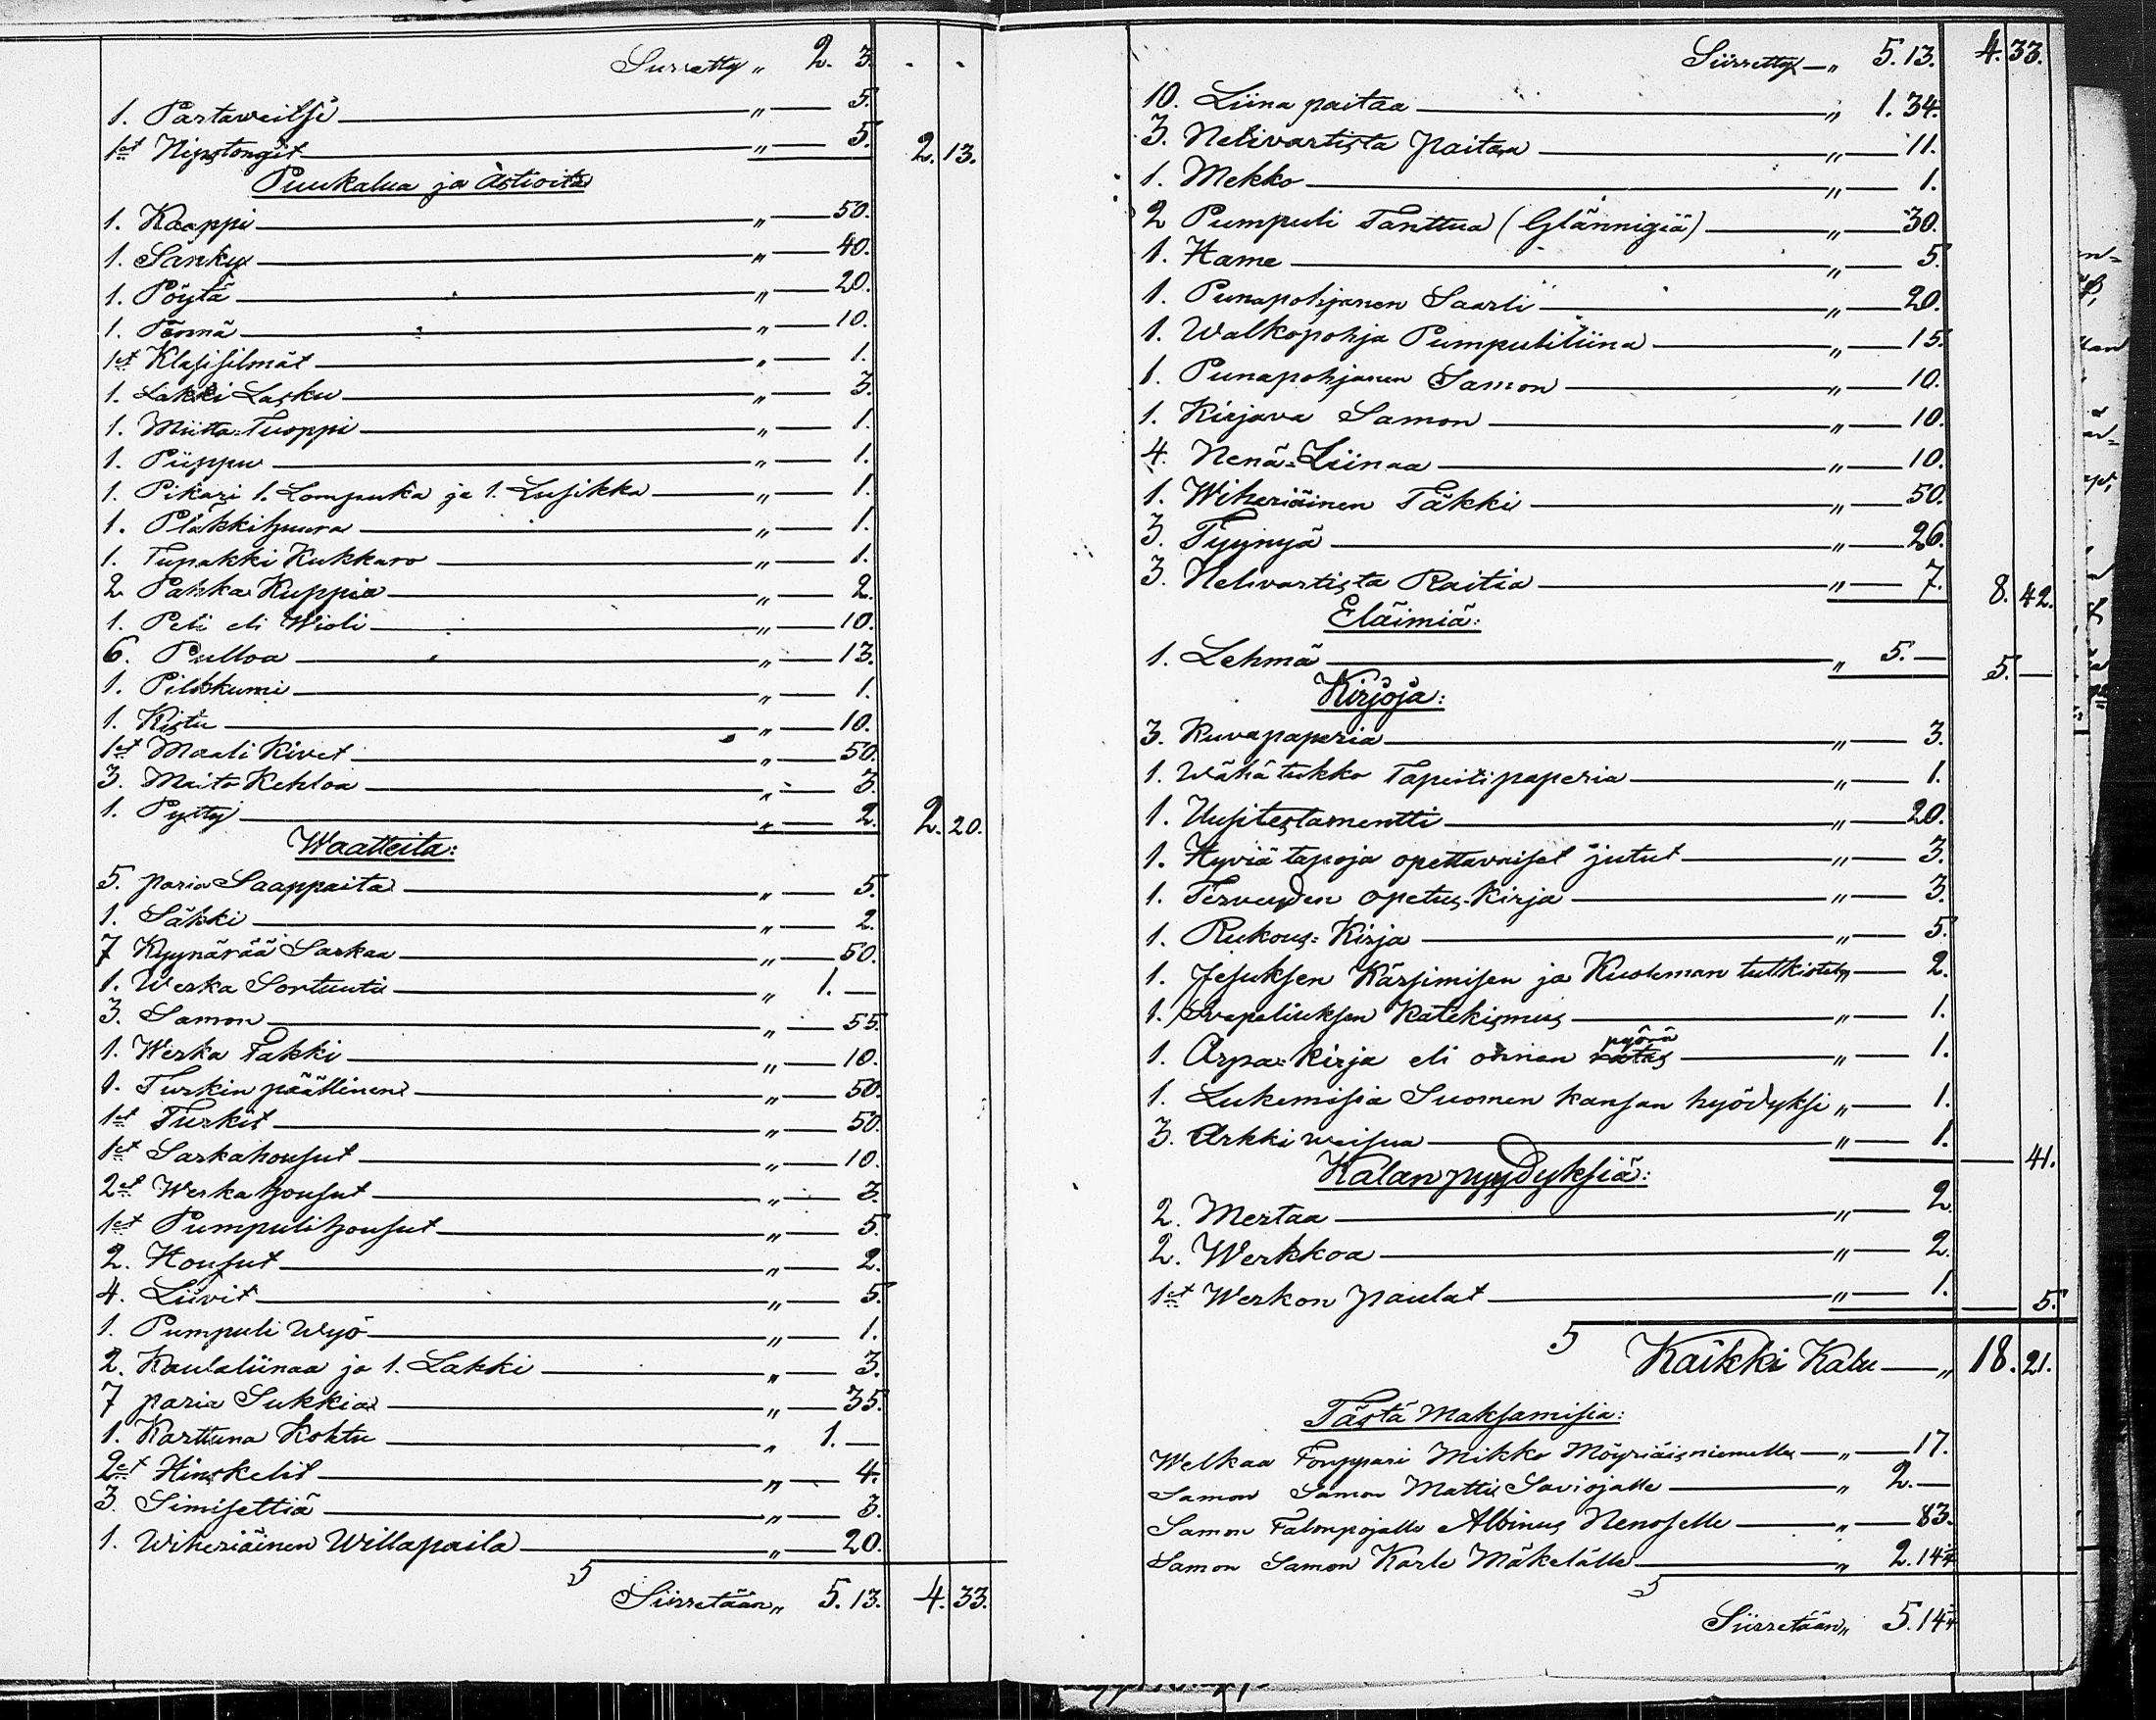 Siirretty „ 2. 3. - -
1. Partaveitsi „ — 5.
1et Nipstongit „ — 5. 2. 13.
Puukalua ja Astioita
1. Kaappi „ — 50.
1. Sänky „ — 40.
1. Pöytä „ — 20.
1. „ — 10.
1et Klasisilmät „ — 1.
1. Lakki Lasku „ — 3.
1. Mitta=Tuoppi „ — 1.
1. Piippu „ — 1.
1. Pikari 1. Lompuka ja 1. Lusikka „ — 1.
1. Pläkkihuura „ — 1.
1. Tupakki Kukkaro „ — 1.
2. Pahka Kuppia „ — 2.
1. Peli eli Wioli „ — 10.
6. Pulloa „ — 13.
1. Pilkkumi „ — 1.
1. Kistu „ — 10.
1et Maali Kivet „ — 50.
3. Maito Kehloa „ — 3.
1. Pytty „ — 2. 2. 20.
Waatteita:
5. paria Saappaita „ — 5.
1. Säkki „ — 2.
7 Kyynärää Sarkaa „ — 50.
1. Werka Sortuuti „ 1. —
3. Samon „ — 55.
1. Werka Takki „ — 10.
1. Turkin päällinen „ — 50.
1et Turkit „ — 50.
1et Sarkahousut „ — 10.
2et Werka housut „ — 3.
1et Pumpuli housut „ — 5.
2. Housut „ — 2.
4. Liivit „ — 5.
1. Pumpuli Wyö „ — 1.
2. Kaulaliinaa ja 1. Lakki „ — 3.
7 paria Sukkia „ — 35.
1. Karttuna Kohtu „ 1. —
2et Hinskelit „ — 4.
3. Simisettiä „ — 3.
1. Wiheriäinen Willapaita „ — 20.
Siirretään „ 5. 13. 4. 33.
Siirretty — „ 5. 13. 4. 33.
10. Liina paitaa „ 1. 34.
3. Nelivartista Paitaa „ — 11.
1. Mekko „ — 1.
2 Pumpuli Tanttua (Glännigiä) „ — 30.
1. Hame „ — 5.
1. Punapohjanen Saarli „ — 20.
1. Walkopohja Pumpuliliina „ — 15.
1. Punapohjanen Samon „ — 10.
1. Kirjava Samon „ — 10.
4. Nenä=Liinaa „ — 10.
1. Wiheriäinen Täkki „ — 50.
3. Tyynyä „ — 26.
3. Nelivartista Raitia „ — 7. 8. 42.
Eläimiä:
1. Lehmä „ 5. — 5. —
Kirjoja:
3. Kuvapaperia „ — 3.
1. Wähä tukko Tapeitipaperia „ — 1.
1. Uusitestamentti „ — 20.
1. Hyviä tapoja opettavaiset jutut „ — 3.
1. Terveyden opetus-Kirja „ — 3.
1. Rukous=Kirja „ — 5.
1. Jesuksen Kärsimisen ja Kuoleman tutkistel „ — 2.
1. Svepeliuksen Katekismus „ — 1.
1. Arpa=kirja eli onnen ratas pyörä „ — 1.
1. Lukemisia Suomen kansan hyödyksi „ — 1.
3. Arkki weisua „ — 1. — 41.
Kalanpyydyksiä:
2. Mertaa „ — 2.
2. Werkkoa „ — 2.
1et Werkon paulat „ — 1. — 5.
Kaikki Kalu — „ 18. 21.
Tästä Maksamisia:
Welkaa Torppari Mikko Möyriäisniemelle — „ — 17.
Samon Samon Matti Saviojalle „ 2. —
Samon Talonpojalle Albinus Nenoselle „ — 83.
Samon Samon Karle Mäkelälle „ 2. 144
Siirretään „ 5. 144